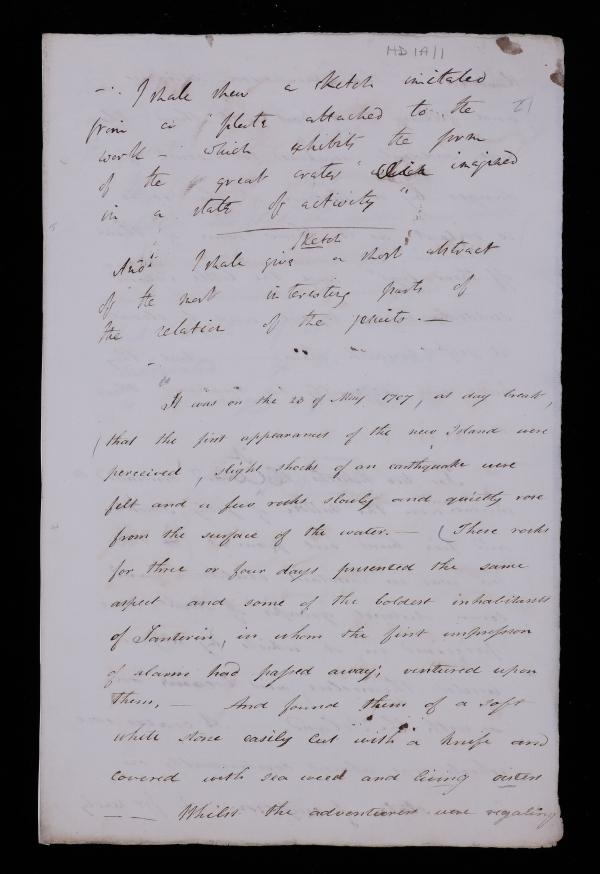 HD 1A/1
21
—. I shall shew a sketch imitated
from a "plate attached to the
work — which exhibits the form
of the great crater" imagined
in a state of activity"
Sketch
And I shall give a short abstract
of the most interesting parts of
the relation of the jesuits. —
"It was on the 23 of May 1707, at day break,
(that the first appearances of the new Island were
perceived, slight shocks of an earthquake were
felt and a few rocks slowly and quietly rose
from the surface of the water. — (These rocks
for three or four days presented the same
aspect and some of the boldest inhabitants
of Santerin, in whom the first impression
of alarm had passed away, ventured upon
them, — And found them of a soft
white stone easily cut with a knife and
covered with sea weed and living oisters
— — Whilst the adventurers were regaling